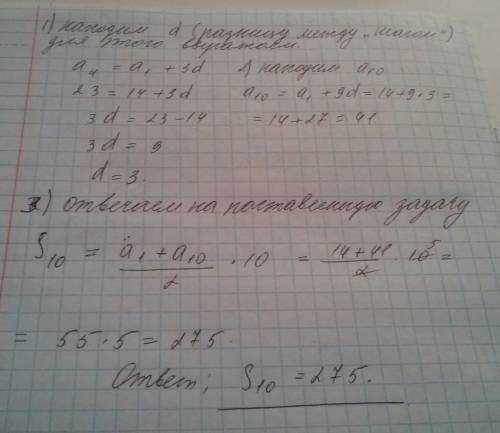 1) находим d (разницу между „шагом“)
для этого выражаем.
a₄ = a₁ + 3d
23 = 14 + 3d
3d = 23 - 14
3d = 9
d = 3.
2) находим a₁₀
a₁₀ = a₁ + 9d = 14 + 9 · 3 =
= 14 + 27 = 41
3) отвечаем на поставленную задачу
S₁₀ = (a₁ + a₁₀)/2 · 10 = (14 + 41)/2 · 10⁵ =
= 55 · 5 = 275.
Ответ: S₁₀ = 275.